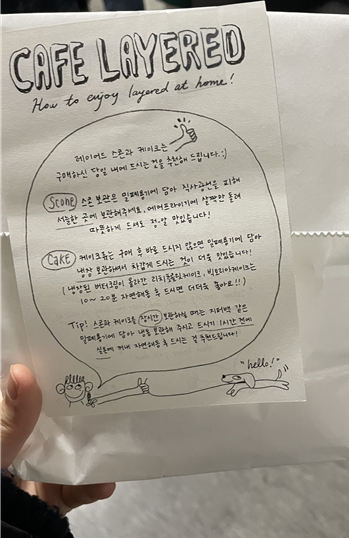 CAFE LAYERED
How to enjoy layered at home!
레이어드 스콘과 케이크는
구매하신 당일 내에 드시는 것을 추천해 드립니다. :)
Scone 스콘 보관은 밀폐용기에 담아 직사광선을 피해
서늘한 곳에 보관해주세요. 에어프라이기에 살짝만 돌려
따뜻하게 드셔도 정말 맛있습니다!
Cake 케이크류는 구매 후 바로 드시지 않으면 밀폐용기에 담아
냉장 보관하셔서 차갑게 드시는 것이 더욱 맛있습니다!
(냉장된 버터크림이 올라간 리치 케이크, 빅토리아케이크는
10~20분 자연해동 후 드시면 더더욱 좋아요!!)
Tip! 스콘과 케이크를 장시간 보관하실 때는 지퍼백 같은
밀폐용기에 담아 냉동 보관해 주시고 드시기 1시간 전에
실온에 꺼내 자연해동 후 드시는 걸 추천드립니다!
"hello!"